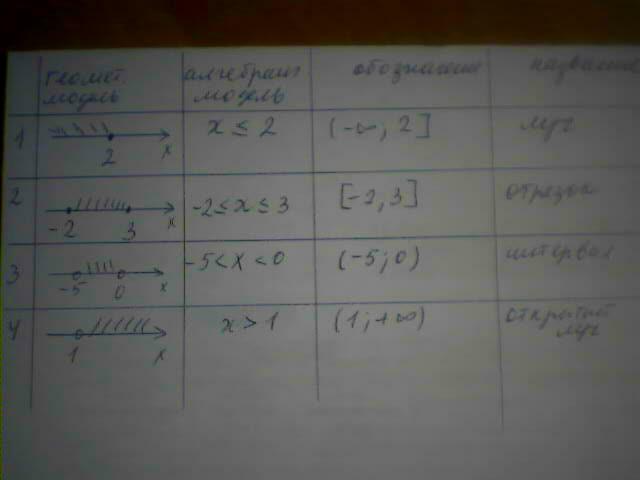 геомет. модель алгебраич. модель обозначение название
1 2 x x ≤ 2 (-∞; 2] луч
2 -2 3 x -2 ≤ x ≤ 3 [-2, 3] отрезок
3 -5 0 x -5 < x < 0 (-5; 0) интервал
4 1 x x > 1 (1; +∞) открытый луч